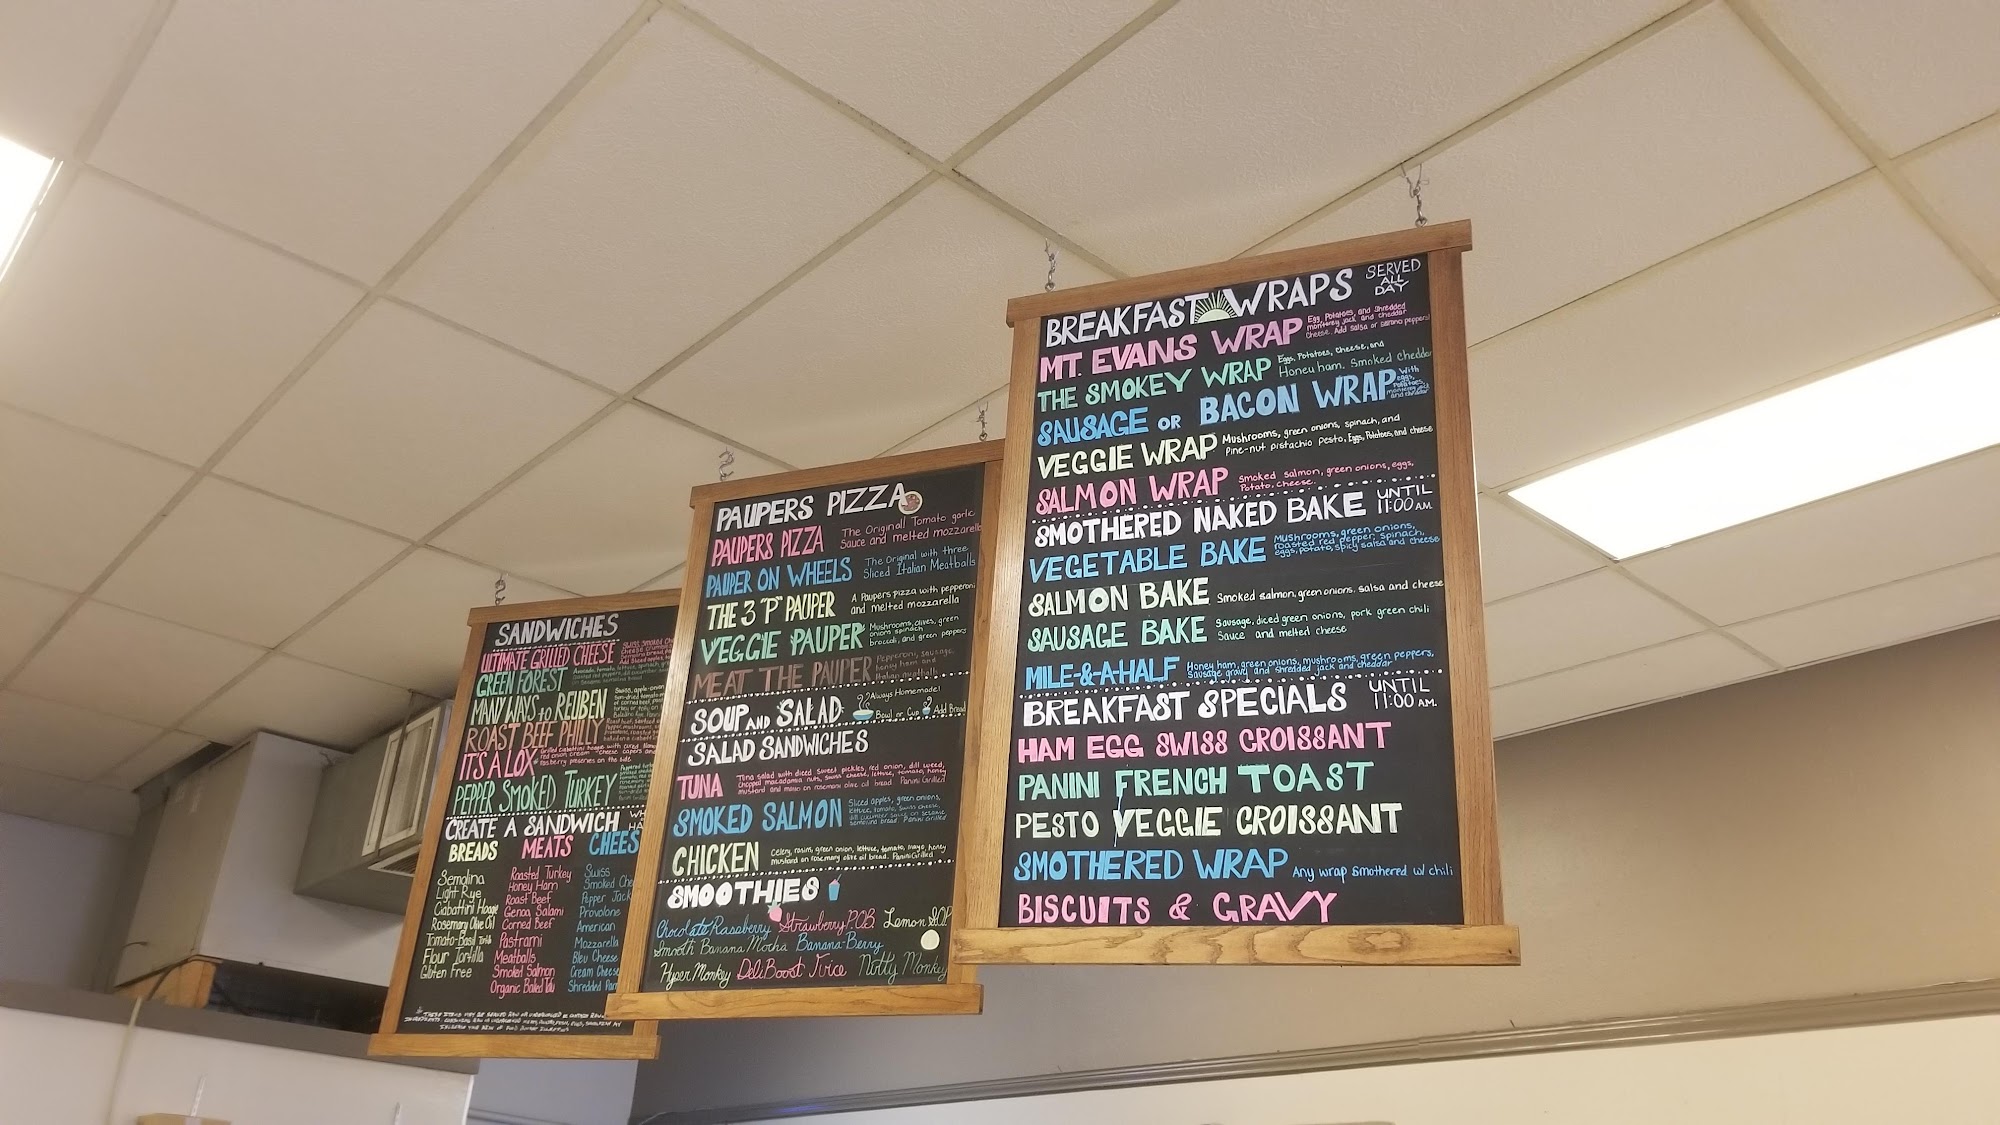 SANDWICHES
ULTIMATE GRILLED CHEESE
GREEN FOREST
MANY WAYS to REUBEN
ROAST BEEF PHILLY
IT'S A LOX
PEPPER SMOKED TURKEY
CREATE A SANDWICH
BREADS MEATS
Semolina
Light Rye
Ciabattini Hoagie
Rosemary Olive Oil
Tomato-Basil
Flour Tortilla
Gluten Free
Roasted Turkey
Honey Ham
Roast Beef
Genoa Salami
Corned Beef
Pastrami
Meatballs
Smoked Salmon
Organic Baked Tofu
Swiss
Smoked
Pepper Jack
Provolone
American
Mozzarella
Bleu Cheese
Cream Cheese
Shredded
PAUPERS PIZZA
PAUPERS PIZZA The Original! Tomato garlic
Sauce and melted mozzarella
PAUPER ON WHEELS The Original with three
Sliced Italian Meatballs
THE 3 "P" PAUPER A Paupers pizza with pepperoni
and melted mozzarella
VEGGIE PAUPER Mushrooms, olives, green
onions spinach
broccoli, and green peppers
MEAT THE PAUPER Pepperoni, sausage,
honey ham and
Italian meatballs
SOUP AND SALAD Always Homemade!
Bowl or Cup Add Bread
SALAD SANDWICHES
TUNA Tuna salad with diced sweet pickles, red onion, dill weed,
chopped macadamia nuts, swiss cheese, lettuce, tomato, honey
mustard and mayo on rosemary olive oil bread. Panini Grilled
SMOKED SALMON Sliced apples, green onions,
lettuce, tomato, swiss cheese,
dill cucumber sauce on
semolina bread. Panini Grilled
CHICKEN Celery, raisin, green onion, lettuce, tomato, mayo, honey
mustard on rosemary olive oil bread. Panini Grilled
SMOOTHIES
Chocolate Raspberry Strawberry P.O.B. Lemon
Smooth Banana Mocha Banana-Berry
Hyper Monkey Deli Boost Juice Nutty Monkey
BREAKFAST WRAPS SERVED
ALL
DAY
MT. EVANS WRAP Egg, Potatoes, and Shredded
monterey jack and cheddar
cheese. Add salsa or
THE SMOKEY WRAP Eggs, Potatoes, cheese, and
Honey ham. Smoked cheddar
SAUSAGE OR BACON WRAP With
eggs,
Potatoes,
monterey jack
and cheddar
VEGGIE WRAP Mushrooms, green onions, spinach, and
Pine-nut pistachio pesto, Eggs, Potatoes, and cheese
SALMON WRAP Smoked salmon, green onions, eggs,
Potato, cheese.
SMOTHERED NAKED BAKE UNTIL
11:00 AM.
VEGETABLE BAKE Mushrooms, green onions,
roasted red pepper, spinach,
eggs, potato, spicy salsa and cheese
SALMON BAKE Smoked salmon, green onions. salsa and cheese
SAUSAGE BAKE Sausage, diced green onions, pork green chili
Sauce and melted cheese
MILE-&-A-HALF Honey ham, green onions, mushrooms, green peppers,
Sausage gravy and shredded jack and cheddar
BREAKFAST SPECIALS UNTIL
11:00 AM.
HAM EGG SWISS CROISSANT
PANINI FRENCH TOAST
PESTO VEGGIE CROISSANT
SMOTHERED WRAP Any wrap smothered w/ chili
BISCUITS & GRAVY